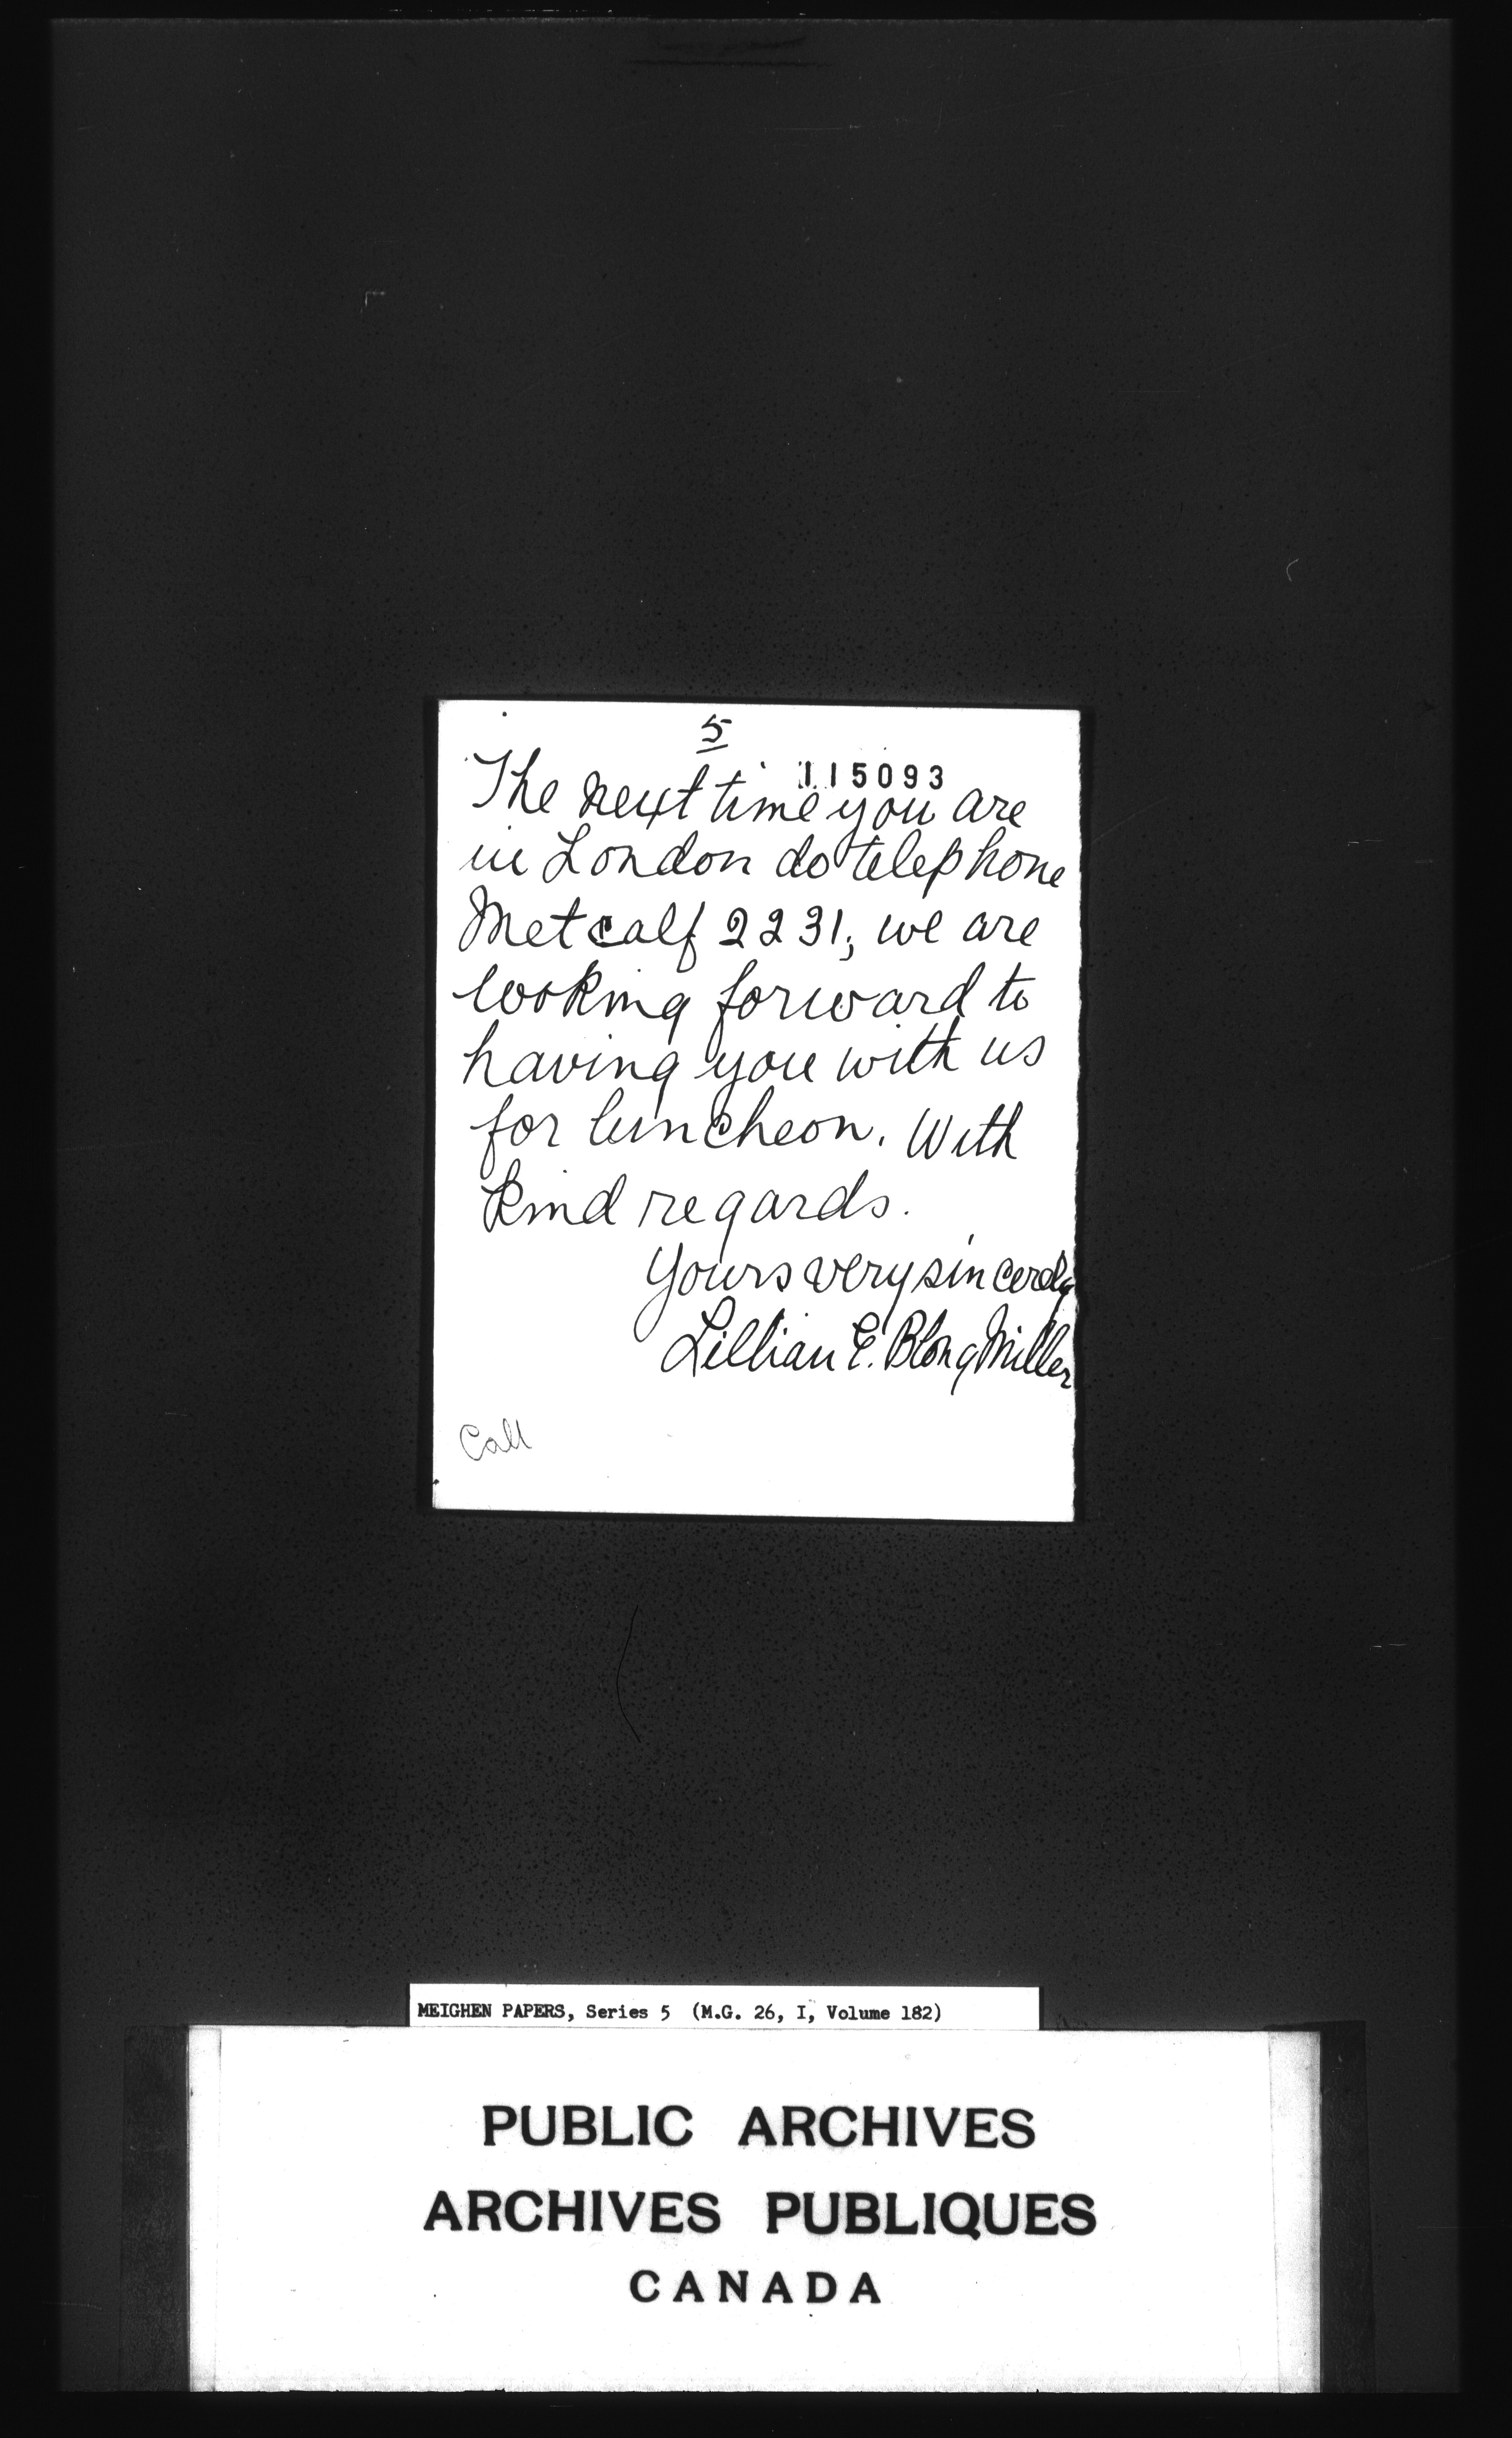 5
115093
The next time you are
in London do telephone
Metcalf 2231; we are
looking forward to
having you with us
for luncheon. With
kind regards.
Yours very sincerely
Lillian E. Blong Miller
Call
MEIGHEN PAPERS, Series 5 (M.G. 26, I, Volume 182)
PUBLIC ARCHIVES
ARCHIVES PUBLIQUES
CANADA